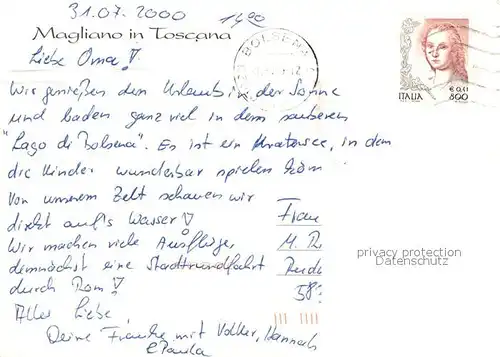 31.07.2000 14,00
Magliano in Toscana
Liebe Oma!
BOLSENA
ITALIA
€ 0,41
800
Wir genießen den Urlaub in der Sonne
und baden ganz viel in dem sauberen
"Lago di Bolsena". Es ist ein Kratersee, in dem
die Kinder wunderbar spielen könn
Von unserem Zelt schauen wir
direkt auf's Wasser!
Wir machen viele Ausflüge,
demnächst eine Stadtrundfahrt
durch Rom!
Alles Liebe,
Deine Frauke mit Volker, Hannah
& Paula
Frau
M. R
58
privacy protection
Datenschutz